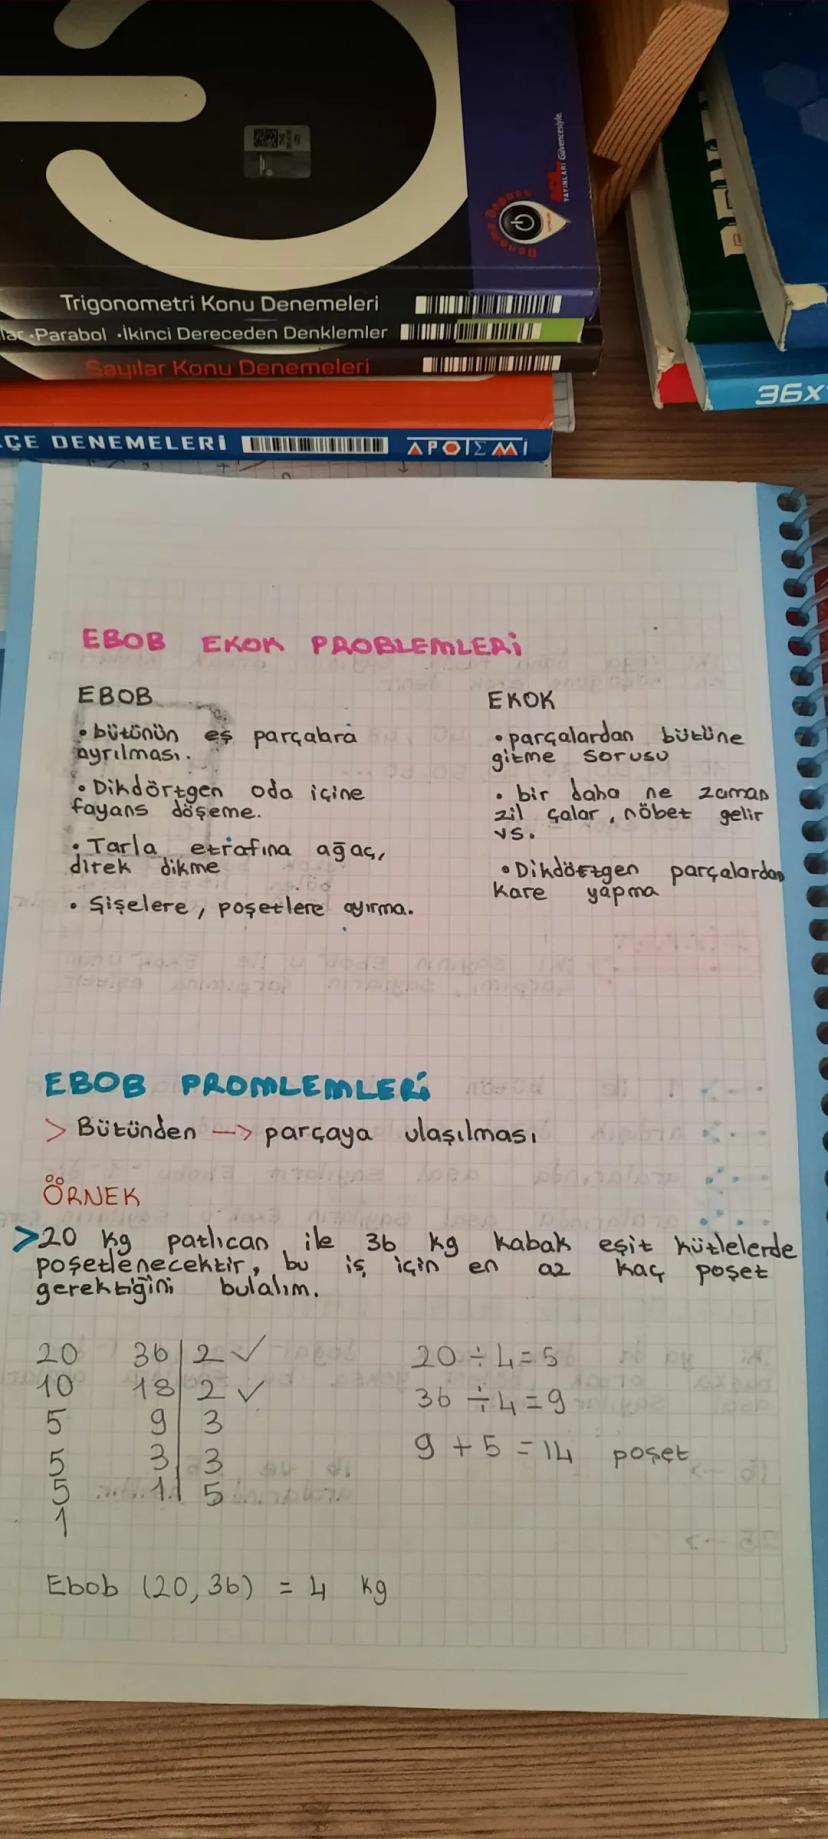 YAYINLARI Güvencesiyle.
Trigonometri Konu Denemeleri
lar • Parabol • İkinci Dereceden Denklemler
Sayılar Konu Denemeleri
ÇE DENEMELERİ
APOTEMİ
36x
EBOB EKOK PROBLEMLERİ
EBOB
• bütünün eş parçalara
ayrılması.
• Dikdörtgen oda içine
fayans döşeme.
• Tarla etrafına ağaç,
direk dikme
• Şişelere, poşetlere ayırma.
EKOK
• parçalardan bütüne
gitme sorusu
• bir daha ne zaman
zil çalar, nöbet gelir
vs.
• Dikdörtgen parçalardan
kare yapma
EBOB PROMLEMLERİ
> Bütünden --> parçaya ulaşılması
ÖRNEK
> 20 kg patlıcan ile 36 kg kabak eşit kütlelerde
poşetlenecektir, bu iş için en az kaç poşet
gerektiğini bulalım.
20 36 | 2 ✓
10 18 | 2 ✓
5 9 | 3
5 3 | 3
5 1 | 5
1
20 ÷ 4 = 5
36 ÷ 4 = 9
9 + 5 = 14 poşet
Ebob (20, 36) = 4 kg